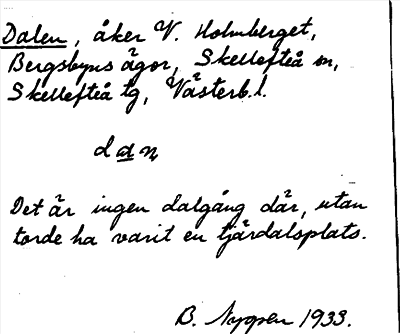 Dalen, åker V. Holmberget,
Bergsbyns ägor, Skellefteå sn,
Skellefteå tg, Västerb.l.
dan
Det är ingen dalgång där, utan
torde ha varit en tjärdalsplats.
B. Nygren 1933.